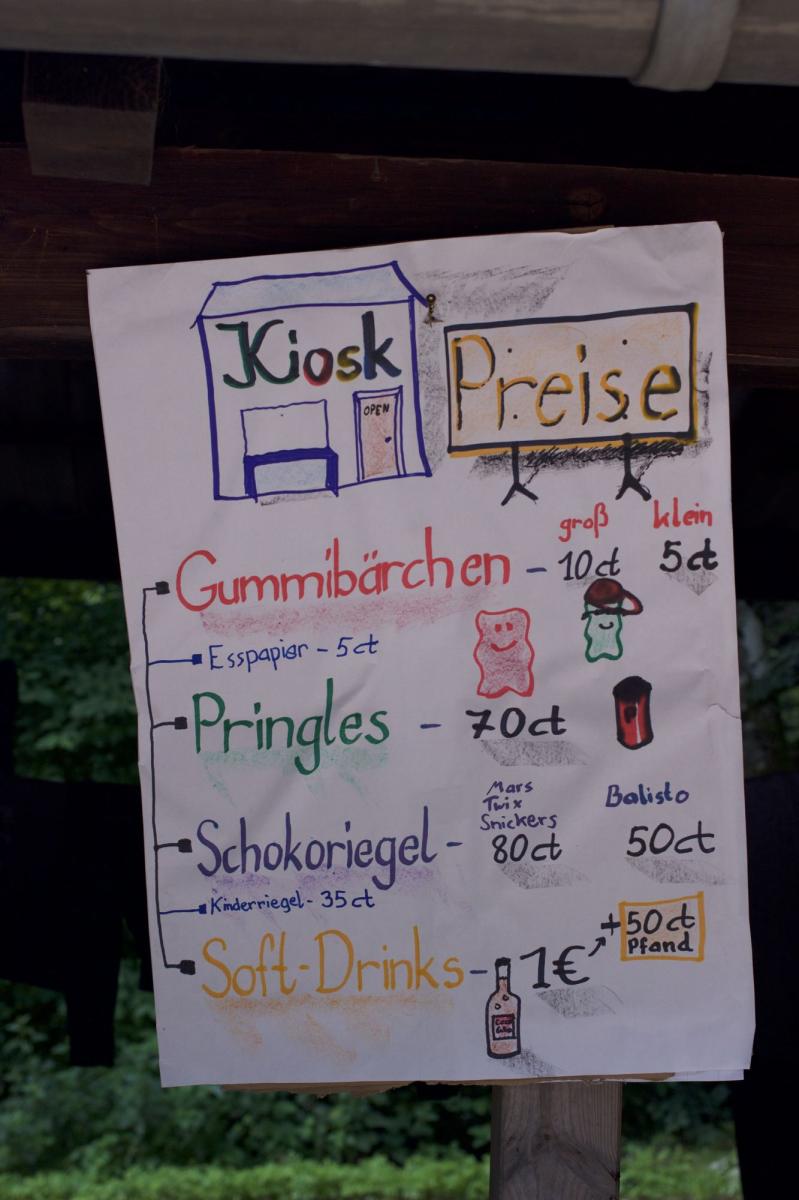 Kiosk
OPEN
Preise
groß klein
Gummibärchen - 10ct 5ct
Esspapier - 5ct
Pringles - 70ct
Mars
Twix
Snickers
Balisto
Schokoriegel - 80ct 50ct
Kinderriegel - 35ct
Soft-Drinks - 1€ + 50ct
Pfand